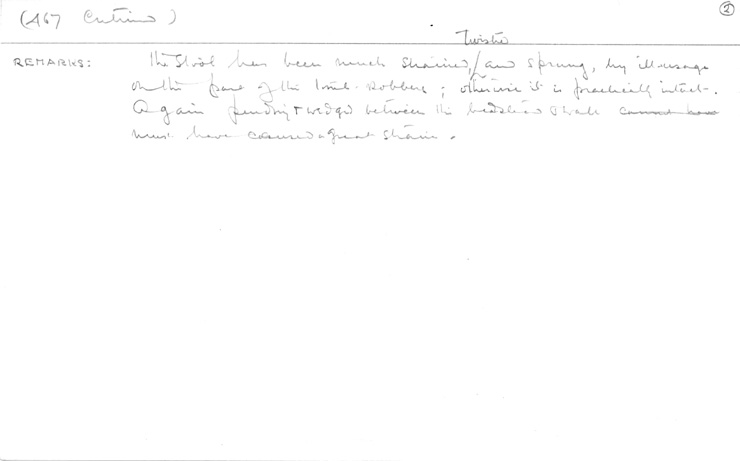 (467 Continued)
2
Twisted
REMARKS: The Stool has been much strained, / and sprung, by ill-usage
on the part of the tomb-robbers; otherwise it is practically intact.
Again pending & wedged between the bedstead & wall cannot have
must have caused a great strain.